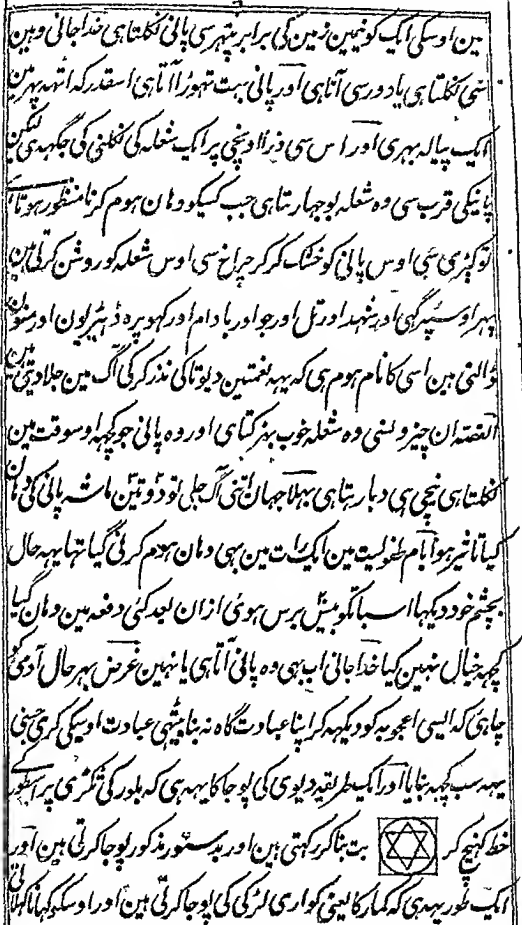 مین اوسکی ایک کونیمین زمین کی برابر پتہر سی پانی نکلتا ہی خدا جانی وہین
سی نکلتا ہی یا دور سی آتا ہی اور پانی بہت تہوڑا آتا ہی اسقدر کہ اٹہہ پہر مین
ایک پیالہ بہری اور اس سی ذرا اونچی پر ایک شعلہ کی نکلنی کی جگہہ ہی لیکن
پانیکی قرب سی وہ شعلہ بوجہا رہتا ہی جب کسیکو وہان ہوم کرنا منظور ہوتا ہی
تو کپڑی سی اوس پانی کو خشک کر کر چراغ سی اوس شعلہ کو روشن کرتی ہین
پہر اوسپر گہی اور شہد اور تل اور جو اور بادام اور کہوپرہ ڈہیریون اور منون
ڈالتی ہین اسی کا نام ہوم ہی کہ یہہ نعمتین دیوتا کی نذر کر کی آگ مین جلا دیتی ہین
القصہ ان چیزونسی وہ شعلہ خوب بہڑکتا ہی اور وہ پانی جو کچہہ اوسوقت مین
نکلتا ہی نیچی ہی دبا رہتا ہی بہلا جہان اتنی آگ جلی تو دو تین ماشہ پانی کی وہان
کیا تاثیر ہو ایام طفولیت مین ایک رات مین بہی وہان ہوم کرنی گیا تہا یہہ حال
بچشم خود دیکہا اسباتکو بیس برس ہوئی ازان بعد کئی دفعہ مین وہان گیا
کچہہ خیال نہین کیا خدا جانی اب بہی وہ پانی آتا ہی یا نہین غرض بہر حال آدمی کو
چاہئی کہ ایسی اعجوبہ کو دیکہہ کر اپنا عبادت گاہ نہ بنا بیٹہی عبادت اوسکی کری جسنی
یہہ سب کچہہ بنایا اور ایک طریقہ دیوی کی پوجا کا یہہ ہی کہ بلور کی ٹکڑی پر اسطور کی
خط کہینچ کر بت بنا کر رکہتی ہین اور بدستور مذکور پوجا کرتی ہین اور
ایک طور یہہ ہی کہ کمار کا یعنی کواری لڑکی کی پوجا کرتی ہین اور اوسکو کہانا کہلاتی